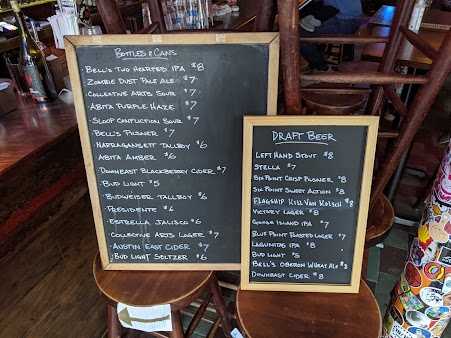 Bottles & Cans
· Bell's Two Hearted IPA $8
· Zombie Dust Pale Ale $7
· Collective Arts Sour $7
· Abita Purple Haze $7
· Sloop Confliction Sour $7
· Bell's Pilsner $7
· Narragansett Tallboy $6
· Abita Amber $6
· Downeast Blackberry Cider $7
· Bud Light $5
· Budweiser Tallboy $6
· Presidente $6
· Estrella Jalisco $6
· Collective Arts Lager $7
· Austin East Cider $7
· Bud Light Seltzer $6
Draft Beer
Left Hand Stout $8
Stella $7
Six Point Crisp Pilsner $8
Six Point Sweet Action $8
Flagship Kill Van Kolsch $8
Victory Lager $8
Goose Island IPA $7
Blue Point Toasted Lager $7
Lagunitas IPA $8
Bud Light $5
Bell's Oberon Wheat Ale $8
Downeast Cider $8